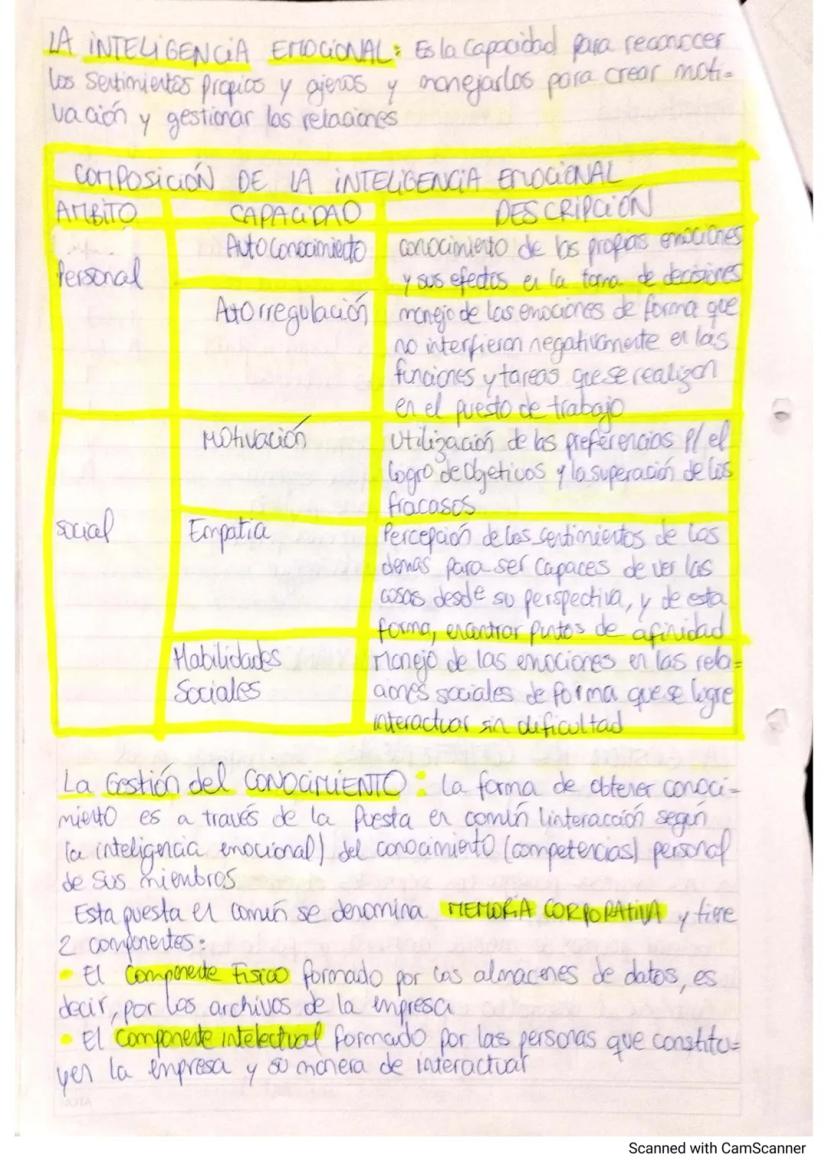 LA INTELIGENCIA EMOCIONAL: Es la capacidad para reconocer
los sentimientos propios y ajenos y manejarlos para crear moti-
vación y gestionar las relaciones
COMPOSICIÓN DE LA INTELIGENCIA EMOCIONAL
AMBITO CAPACIDAD DESCRIPCIÓN
Personal
Autoconocimiento
conocimiento de las propias emociones
y sus efectos en la toma de decisiones
Autorregulación
manejo de las emociones de forma que
no interfieran negativamente en las
funciones y tareas que se realizan
en el puesto de trabajo
social
Motivación
Utilización de las preferencias p/ el
logro de objetivos y la superación de los
fracasos
Empatia
Percepción de los sentimientos de los
demas para ser capaces de ver las
cosas desde su perspectiva, y de esta
forma, encontrar puntos de afinidad
Habilidades
Sociales
Manejo de las emociones en las rela-
ciones sociales de forma que se logre
interactuar sin dificultad
La Gestión del CONOCIMIENTO: La forma de obtener conoci-
miento es a través de la Puesta en común (interacción según
la inteligencia emocional) del conocimiento (competencias) personal
de sus miembros
Esta puesta en común se denomina MEMORIA CORPORATIVA y tiene
2 componentes:
• El Componente Fisico formado por los almacenes de datos, es
decir, por los archivos de la empresa
• El Componente intelectual formado por las personas que constitu-
yen la empresa y su manera de interactuar
Scanned with CamScanner